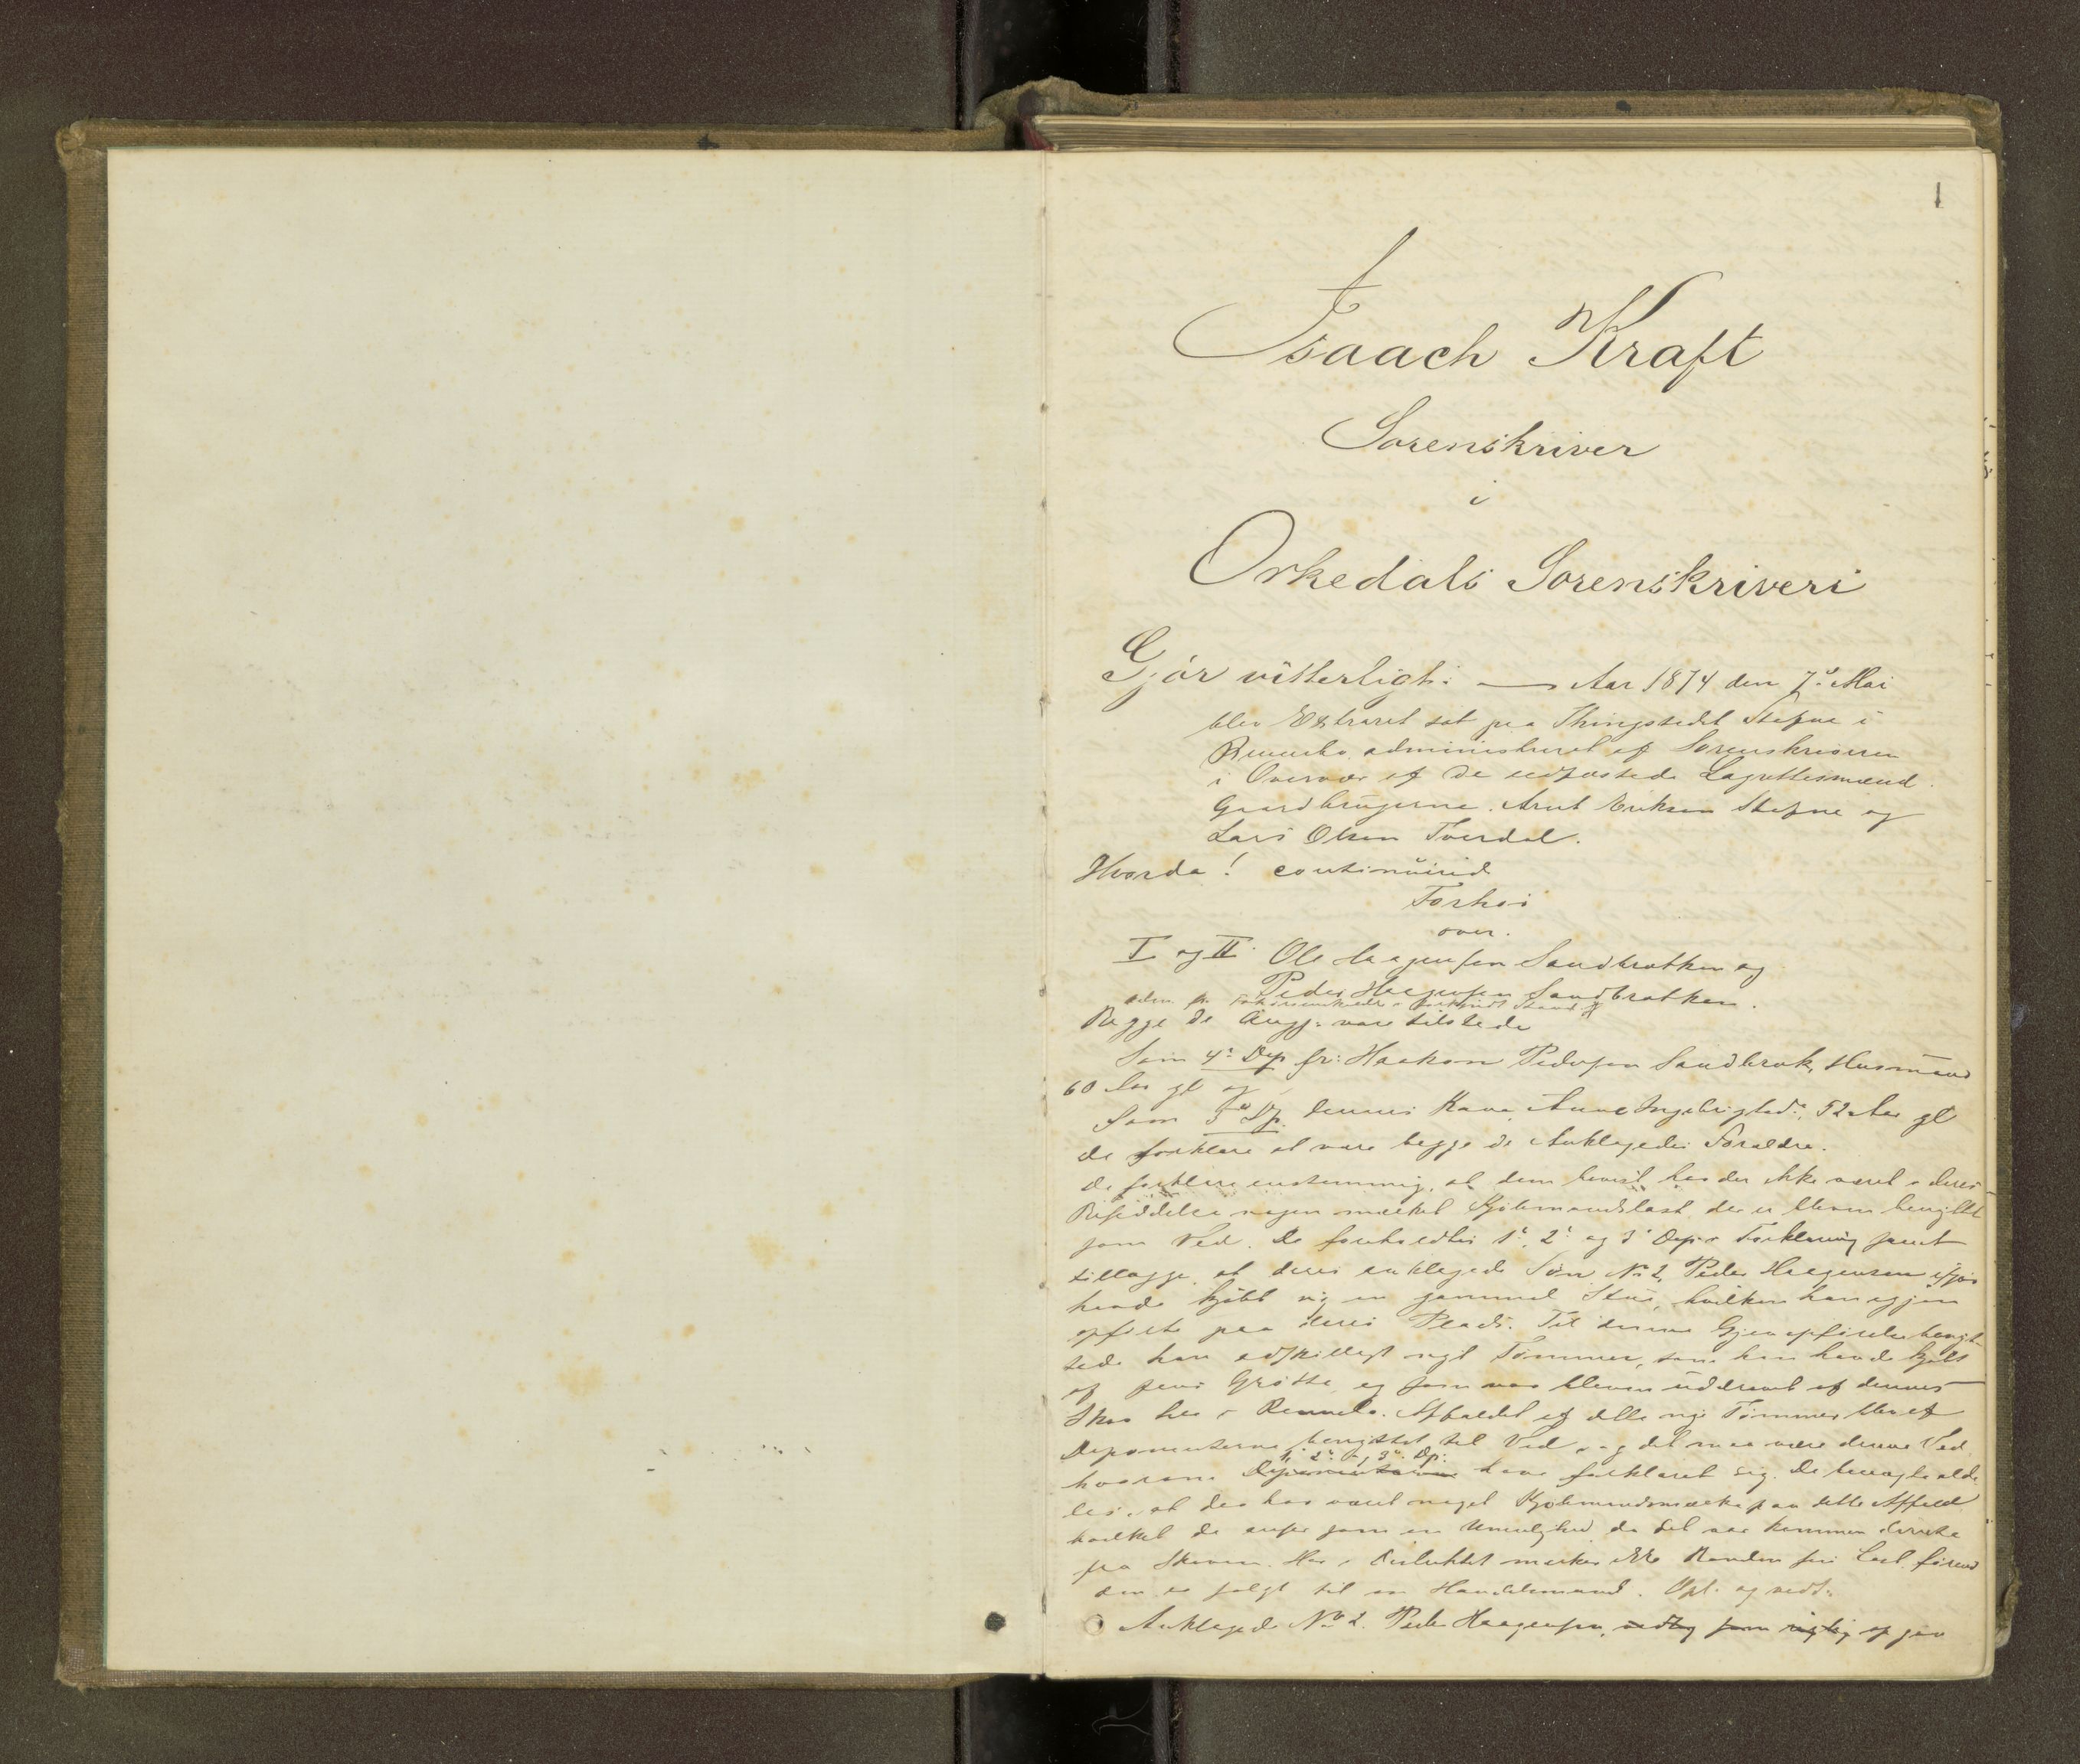 1
Isaach Kraft
Sorenskriver
i
Orkedals Sorenskriveri
Gjör vitterligt: — Aar 1874 den 7de Mai
blev Extraret sat paa Thingstedet Stefne i
Rennebo administreret af Sorenskriveren
i Overvær af de edfæstede Lagrettesmænd
Gaardbrugerne Arnt Eriksen Stefne og
Lars Olsen Tverdal.
Hvorda! continuerid
Forhør
over.
I og II Ole Haagensen Sandbrækken og
Peder Haagensen Sandbrækken.
Begge de Angj. vare tilstede
Som 4de Dep fr: Haakon Pedersen Sandbræk, Husmand
60 Aar gl og
Som 5te Dp. dennes Kone Anne Ingebrigtsd:, 52 Aar gl
de forklare at være begge de Anklagedes Forældre.
De forklare enstemmig, at dem bevist har der ikke været i deres
Besiddelse nogen mærket Kjøbmandslast der er bleven benyttet
som Ved. De foreholdtes 1ste, 2den og 3die Dep:s Forklaring samt
tillægge, at deres anklagede Søn No 2, Peder Haagensen ifjor
havde kjøbt sig en gammel Stue, hvilken han igjen
opførte paa deres Plads. Til denne Gjenopførelse benyt-
tede han adskilligt nyt Tømmer, som han havde kjøbt
af Jens Grötte og som var bleven uddrevet af dennes
Skov her i Rennebo. Affaldet af dette nye Tømmer blev af
Deponenterne benyttet til Ved, og det maa være denne Ved
1ste 2den & 3die Dp:
hvorom Deponenterne have forklaret sig. De benægte alde-
les, at der har været noget Kjøbmandsmærke paa dette Affald
hvilket de anser som en Umulighed da det var kommen directe
fra Skoven. Her i Distriktet mærker ikke Bonden sin Last førend
den er solgt til en Handelsmand. Opl. og vedt:
Anklagede No 2. Peder Haagensen, vedtog som rigtig opgav